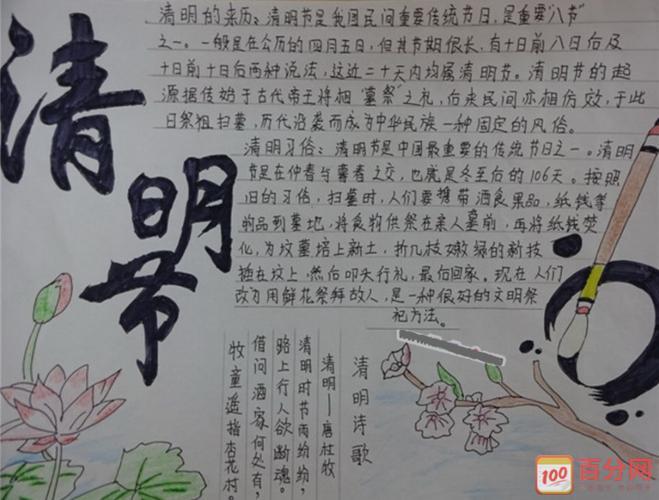 清明节
清明的来历：清明节是我国民间重要传统节日，是重要“八节”
之一。一般是在公历的四月五日，但其节期很长，有十日前八日后及
十日前十日后两种说法，这近二十天内均属清明节。清明节的起
源据传始于古代帝王将相“墓祭”之礼，后来民间亦相仿效，于此
日祭祖扫墓，历代沿袭而成为中华民族一种固定的风俗。
清明习俗：清明节是中国最重要的传统节日之一。清明
节是在仲春与暮春之交，也就是冬至后的106天。按照
旧的习俗，扫墓时，人们要携带酒食果品，纸钱等
物品到墓地，将食物供祭在亲人墓前，再将纸钱焚
化，为坟墓培上新土，折几枝嫩绿的新枝
插在坟上，然后叩头行礼，最后回家。现在人们
改为用鲜花祭拜故人，是一种很好的文明祭
祀方法。
清明诗歌
清明——唐杜牧
清明时节雨纷纷，
路上行人欲断魂。
借问酒家何处有，
牧童遥指杏花村。
100
百分网